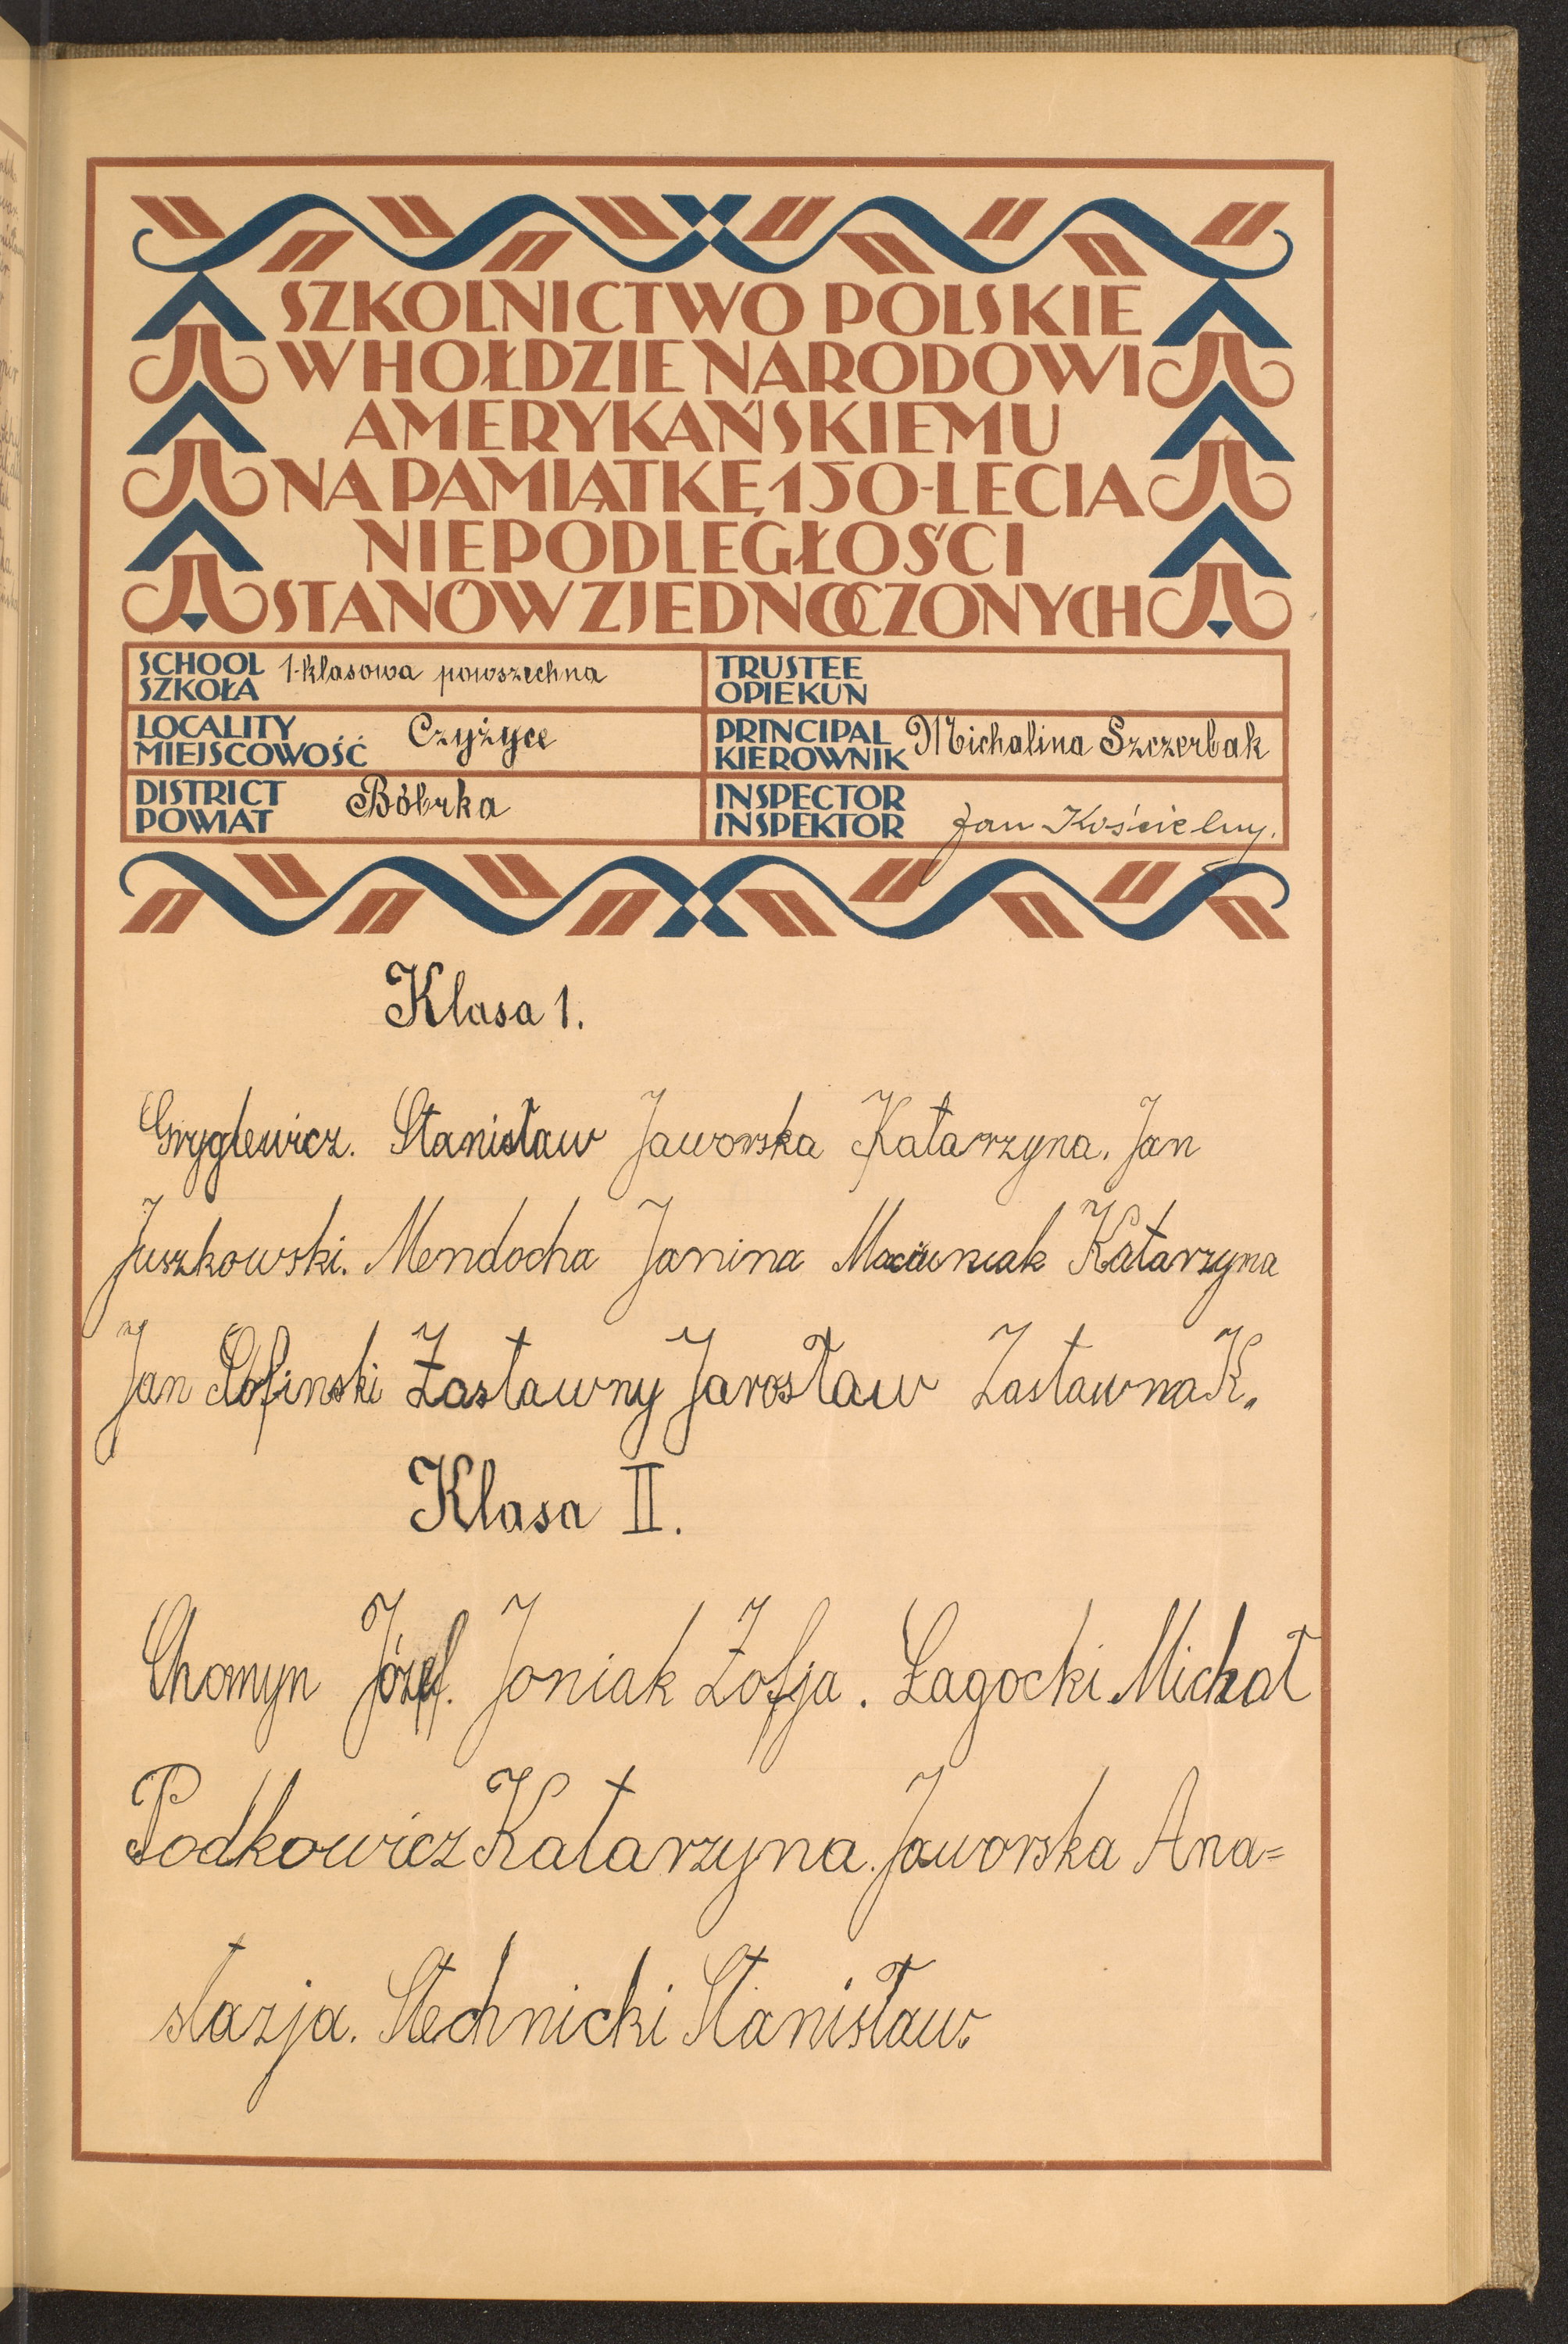 SZKOLNICTWO POLSKIE
W HOŁDZIE NARODOWI
AMERYKAŃSKIEMU
NA PAMIĄTKĘ 150-LECIA
NIEPODLEGŁOŚCI
STANÓW ZJEDNOCZONYCH
SCHOOL
SZKOŁA 1-klasowa powszechna
TRUSTEE
OPIEKUN
LOCALITY
MIEJSCOWOŚĆ Czyżyce
PRINCIPAL
KIEROWNIK Michalina Szczerbak
DISTRICT
POWIAT Bóbrka
INSPECTOR
INSPEKTOR Jan Kościelny.
Klasa 1.
Gryglewicz. Stanisław Jaworska Katarzyna. Jan
Juszkowski. Mendocha Janina Katarzyna
Jan Zastawny Jarosław Zastawna K.
Klasa II.
Chomyn Józef. Joniak Zofja. Łagocki Michał
Podkowicz Katarzyna. Jaworska Ana=
stazja. Stechnicki Stanisław.